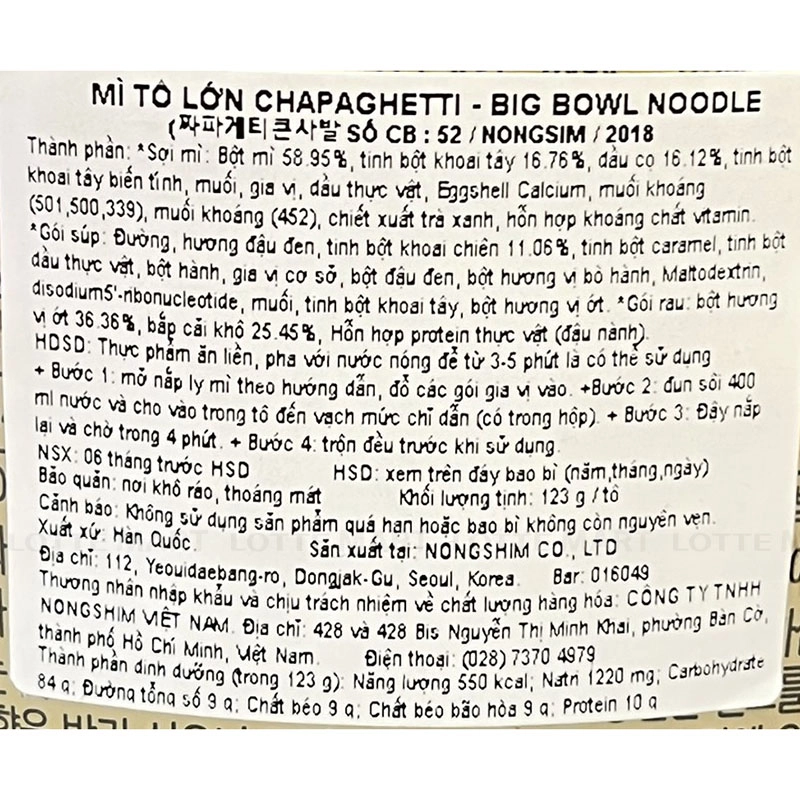 MÌ TÔ LỚN CHAPAGHETTI - BIG BOWL NOODLE
(짜파게티큰사발 SỐ CB : 52 / NONGSIM / 2018
Thành phần: *Sợi mì: Bột mì 58.95%, tinh bột khoai tây 16.76%, dầu cọ 16.12%, tinh bột
khoai tây biến tính, muối, gia vị, dầu thực vật, Eggshell Calcium, muối khoáng
(501,500,339), muối khoáng (452), chiết xuất trà xanh, hỗn hợp khoáng chất vitamin.
*Gói súp: Đường, hương đậu đen, tinh bột khoai chiên 11.06%, tinh bột caramel, tinh bột
dầu thực vật, bột hành, gia vị cơ sở, bột đậu đen, bột hương vị bò hành, Maltodextrin,
disodium5'-ribonucleotide, muối, tinh bột khoai tây, bột hương vị ớt. *Gói rau: bột hương
vị ớt 36.36%, bắp cải khô 25.45%, Hỗn hợp protein thực vật (đậu nành).
HDSD: Thực phẩm ăn liền, pha với nước nóng để từ 3-5 phút là có thể sử dụng
+ Bước 1: mở nắp ly mì theo hướng dẫn, đổ các gói gia vị vào. +Bước 2: đun sôi 400
ml nước và cho vào trong tô đến vạch mức chỉ dẫn (có trong hộp). + Bước 3: Đậy nắp
lại và chờ trong 4 phút. + Bước 4: trộn đều trước khi sử dụng.
NSX: 06 tháng trước HSD HSD: xem trên đáy bao bì (năm,tháng,ngày)
Bảo quản: nơi khô ráo, thoáng mát Khối lượng tịnh: 123 g / tô
Cảnh báo: Không sử dụng sản phẩm quá hạn hoặc bao bì không còn nguyên vẹn.
Xuất xứ: Hàn Quốc. Sản xuất tại: NONGSHIM CO., LTD
LOTTE MART LOTTE MART LOTTE
Địa chỉ: 112, Yeouidaebang-ro, Dongjak-Gu, Seoul, Korea. Bar: 016049
Thương nhân nhập khẩu và chịu trách nhiệm về chất lượng hàng hóa: CÔNG TY TNHH
NONGSHIM VIỆT NAM. Địa chỉ: 428 và 428 Bis Nguyễn Thị Minh Khai, phường Bàn Cờ,
thành phố Hồ Chí Minh, Việt Nam. Điện thoại: (028) 7370 4979
Thành phần dinh dưỡng (trong 123 g): Năng lượng 550 kcal; Natri 1220 mg; Carbohydrate
84 g; Đường tổng số 9 g; Chất béo 9 g; Chất béo bão hòa 9 g; Protein 10 g